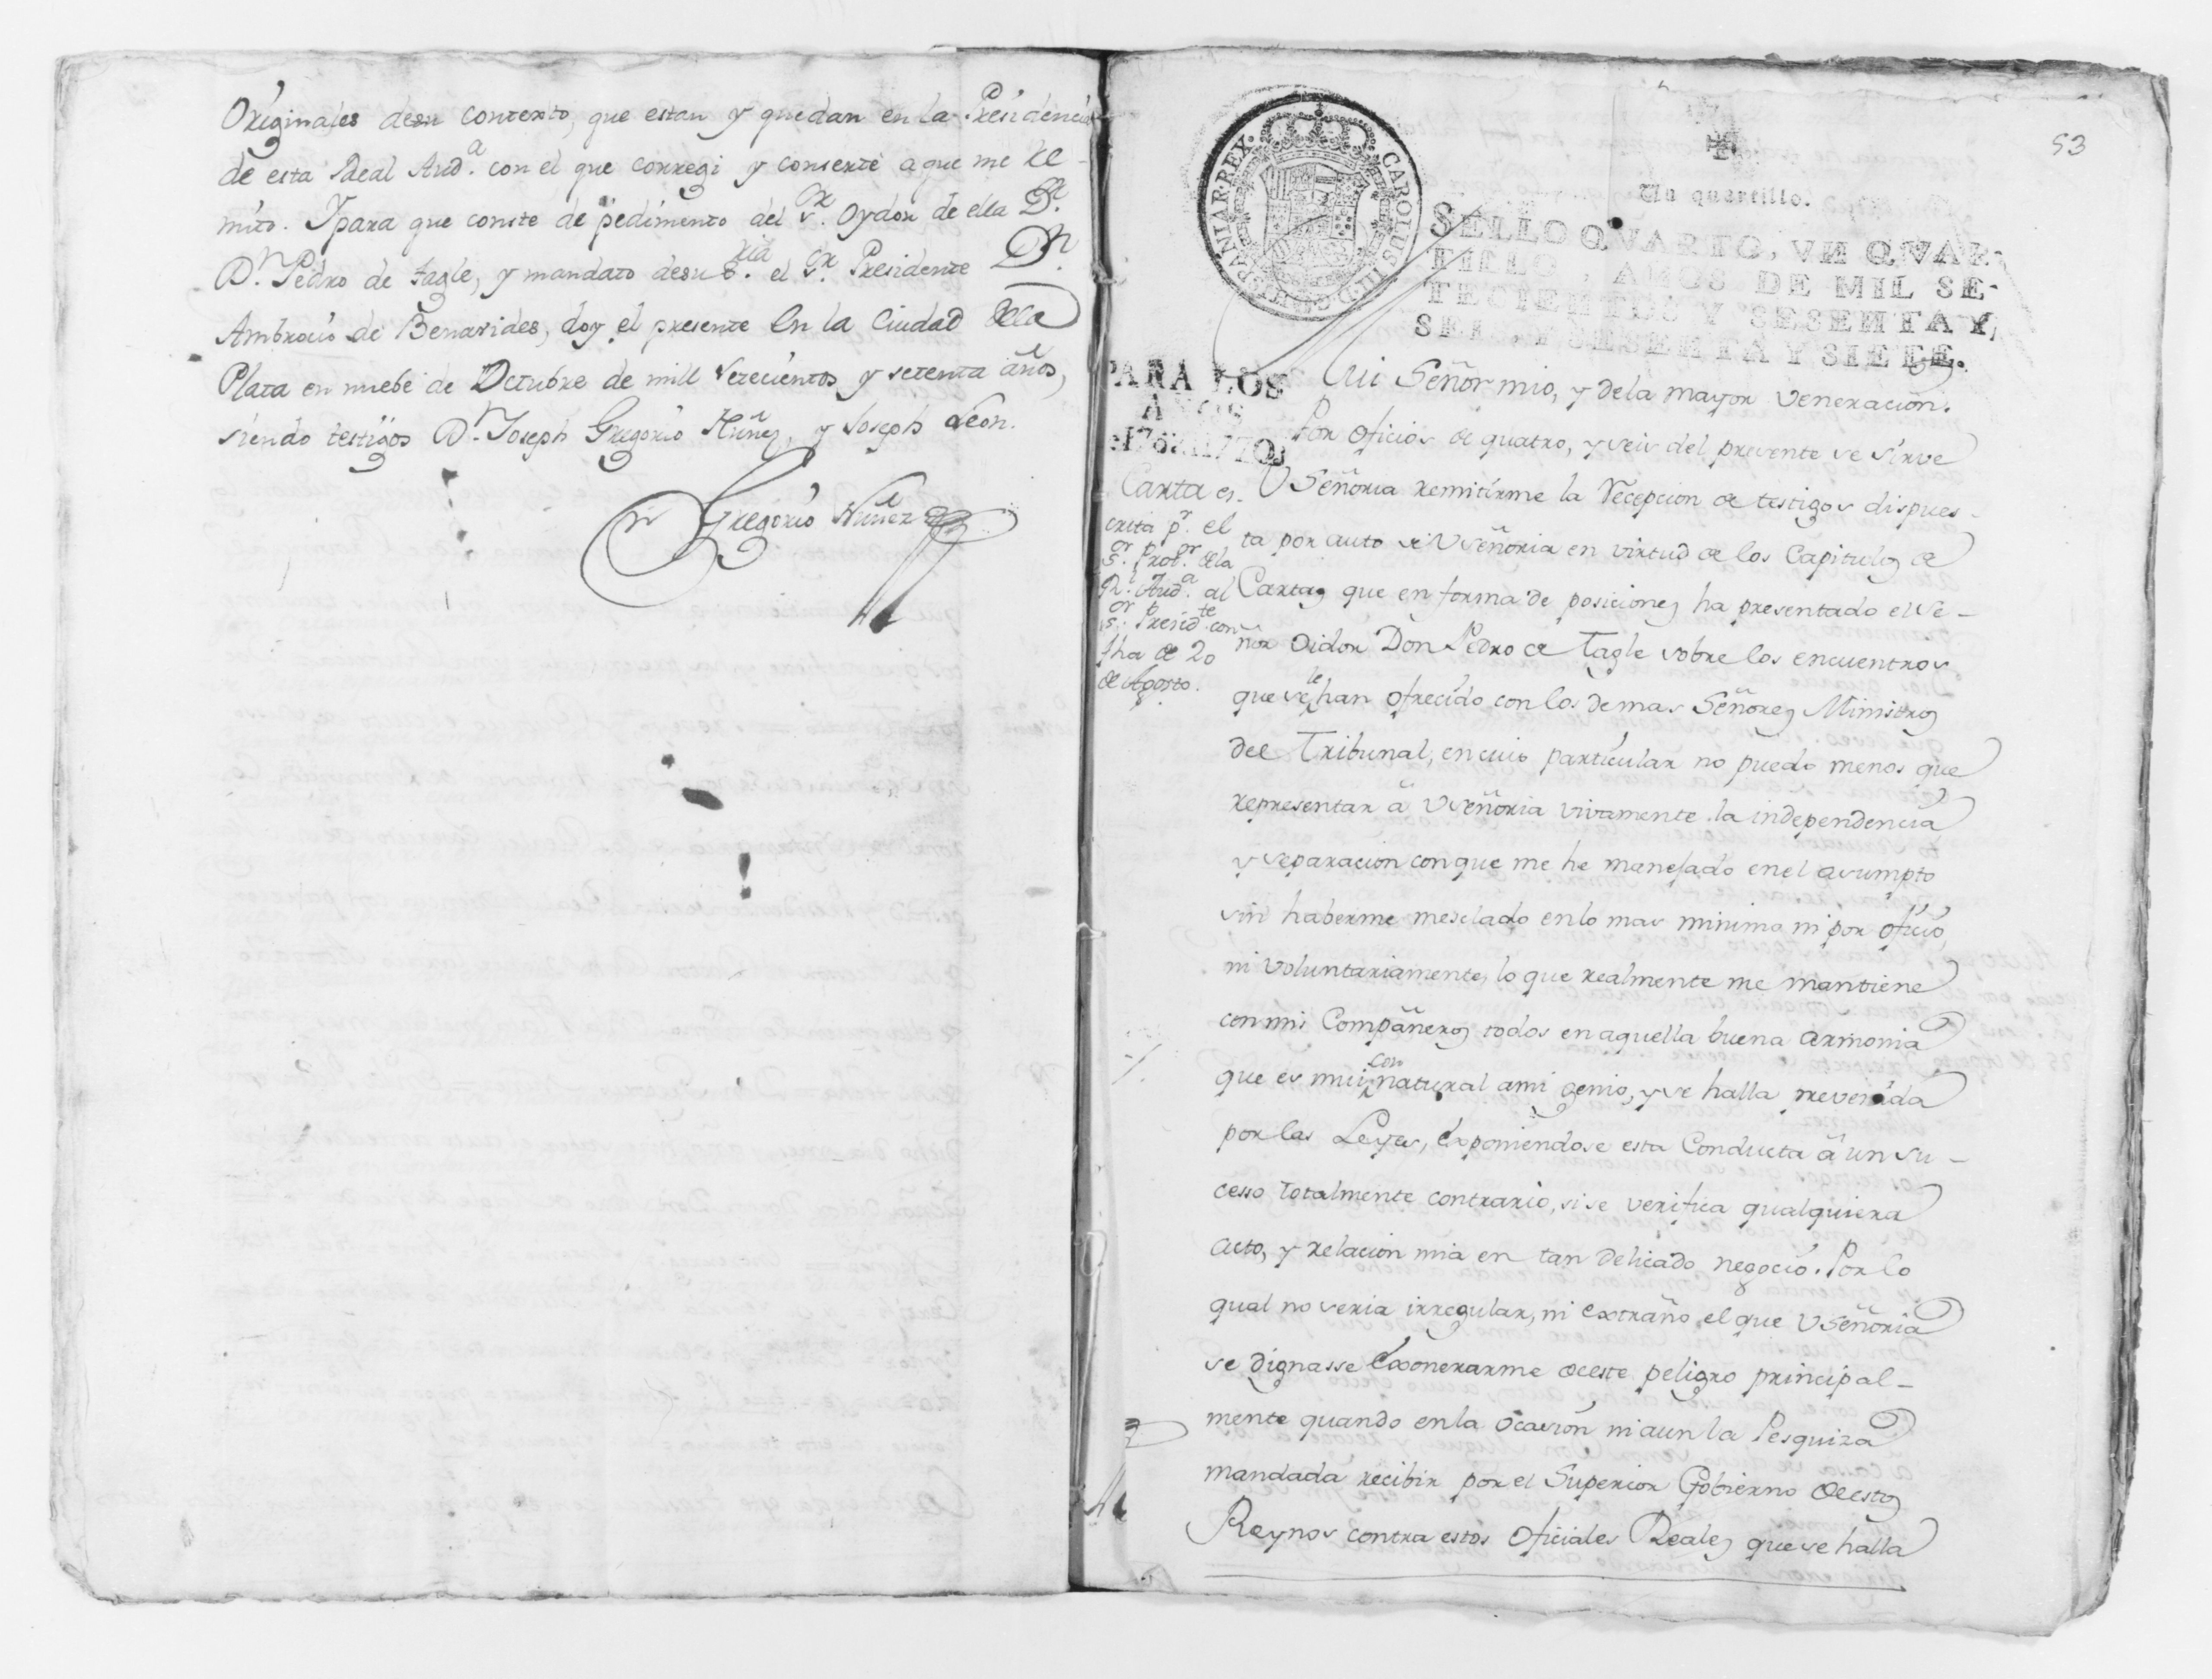 Originales desu contexto, que estan y quedan en la Presidencia
de esta Real Aud.ª con el que corregi y conserte a que me re-
mito. Y para que conste de pedimento del s.or Oydor de ella D.r
D.n Pedro de tagle, y mandato desu S.ria el s.or Presidente D.n
Ambrocio de Benavides, doy el presente En la Ciudad dela
Plata en nuebe de Octubre de mill setecientos y setenta años,
siendo testigos D.n Joseph Gregorio Nuñez, y Joseph Leon.
Gregorio Nuñez
53
CAROLUS III D G HISPANIAR REX
Un quartillo.
SELLO QVARTO, VN QVAR-
TILLO, AÑOS DE MIL SE-
TECIENTOS Y SESENTA Y
SEIS, Y SESENTA Y SIETE.
PARA LOS
AÑOS
1770
Carta es-
crita p.r el
s.or Prot.or dela
R.l Aud.a al
s.or Presid.te con
fha de 20
de Agosto.
Mui Señor mio, y dela mayor veneracion.
Por Oficios de quatro, y seis del presente se sirve
V Señoria remitirme la Recepcion de testigos dispues-
ta por auto de V Señoria en virtud de los Capitulos de
Cartas que en forma de posiciones ha presentado el Se-
ñor Oidor Don Pedro de Tagle sobre los encuentros
que se le han ofrecido con los demas Señores Ministros
del Tribunal, en cuio particular no puedo menos que
representar â V Señoria vivamente la independencia
y separacion con que me he manejado en el asumpto
sin haberme mesclado en lo mas minimo ni por oficio,
ni voluntariamente, lo que realmente me mantiene
con mis Compañeros todos en aquella buena armonia
que es mui con natural a mi genio, y se halla prevenida
por las Leyes, exponiendose esta Conducta â un su-
cesso totalmente contrario, si se verifica qualquiera
acto, y relacion mia en tan delicado negocio. Por lo
qual no seria irregular, ni extraño el que V Señoria
se dignasse exonerarme de este peligro principal-
mente quando en la Ocasion ni aun la Pesquiza
mandada recibir por el Superior Gobierno de estos
Reynos contra estos Oficiales Reales que se halla